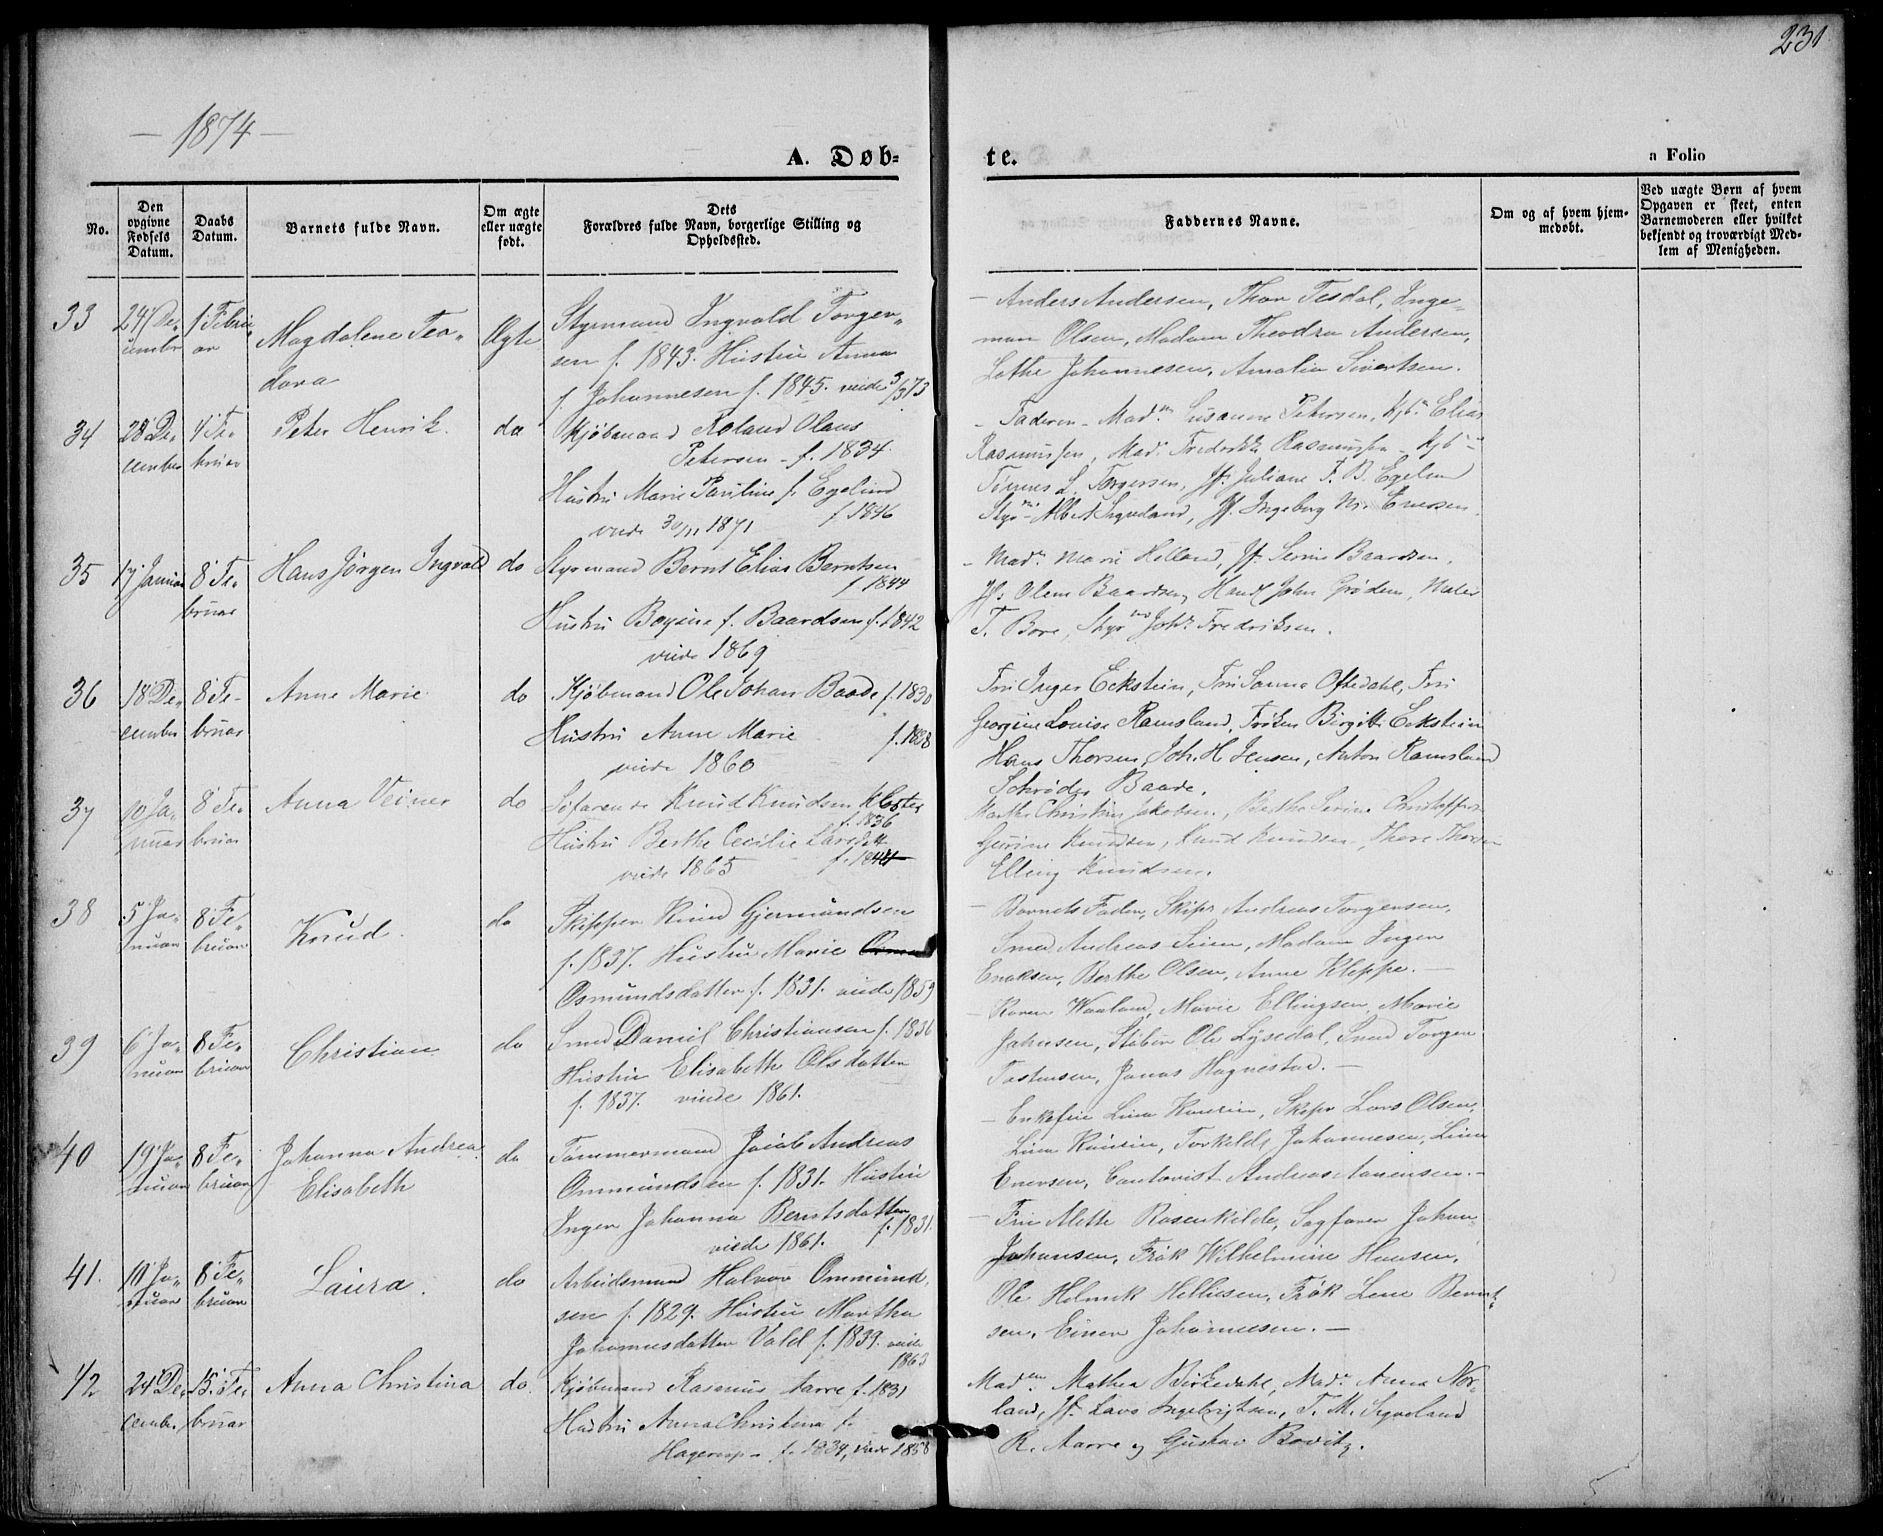 231
— 1874 —
A. Døb=
te.
a Folio
No.
Den opgivne Fødsels Datum.
Daabs Datum.
Barnets fulde Navn.
Om ægte eller uægte født.
Dets Forældres fulde Navn, borgerlige Stilling og Opholdssted.
Faddernes Navne.
Om og af hvem hjemmedøbt.
Ved uægte Børn af hvem Opgaven er skeet, enten Barnemoderen eller hvilket bekjendt og troværdigt Medlem af Menigheden.
33 24 De„ 1 Febru„ Magdalene Teo„ Ægte Styrmand Ingvald Torger„
cember ar dora sen f. 1843. Hustru Anna
f. Johannesen f. 1845. viede 3/5 73
— Anders Andersen, Thor Tesdal, Inge=
man Olsen, Madam Theodra Andersen,
Johannesen, Amalia Sivertsen.
34 28 De„ 1 Fe„ Peter Henrik. do Kjøbmand Roland Olaus
cember bruar Petersen f. 1834.
Hustru Marie Pauline f. Egelund
f 1846
viede 30/11 1871
— Faderen — Madm Susanne Petersen, Kjbm Elias
Rasmussen, Mad. Frederikke Rasmussen — Kjbm
Tønnes L. Torgersen, Jf. Juliane F. B. Egelun
Styrm Albert Sigveland, Jf. Ingeborg M. Enersen.
35 17 Januar 8 Fe„ Hans Jørgen Ingvald do Styrmand Bernt Elias Berntsen
bruar f 1844
Hustru Bogine f. Baardsen f. 1842
viede 1869
— Madm Marie Helland, Jf. Serine Baardsen,
Jf. Olene Baardsen, Handl John Grødem, Maler
T. Bore, Styrmd Joh. Fredriksen.
36 18 De„ 8 Fe- Anne Marie. do Kjøbmand Ole Johan Baade f. 1830
cember bruar Hustru Anne Marie f. 1828
viede 1860
Fru Inger Eckstein, Fru Sanna Oftedahl, Fru
Georgine Louise Ramsland, Frøken Birgitte Eckstein
Hans Thorsen, Joh. H. Jensen, Anton Ramsland
Schrøder Baade.
37 10 Ja„ 8 Fe„ Anna Veiner do Søfarende Knud Knudsen Kloster
nuar bruar f. 1836
Hustru Berthe Cecilie Larsdtt
viede 1865 f. 1844
Marthe Christine Jakobsen, Berthe Serine Christoffers
Gurine Knudsen, Knud Knudsen, Thore Thorsen
Elling Knudsen.
38 5 Ja„ 8 Fe„ Knud. do Skipper Knud Gjermundsen
nuar bruar f. 1837. Hustru Marie
Osmundsdatter f. 1831. viede 1859
— Barnets Fader, Skipr Andreas Torgersen,
Smed Andreas Seim, Madam Inger
Enoksen, Berthe Olsen, Anne Kleppe. —
39 6 Ja„ 8 Fe„ Christian do Smed Daniel Christiansen f. 1836
nuar bruar Hustru Elisabeth Olsdatter
f. 1837. viede 1861.
— Karen Waaland, Marie Ellingsen, Marie
Johnsen, Støber Ole Lysedal, Smed Torger
Tostensen, Jonas Hognestad. —
40 19 Ja„ 8 Fe„ Johanna Andrea do Tømmermand Jacob Andreas
nuar bruar Elisabeth Ommundsen f. 1831. Hustru
Inger Johanna Berntsdatter
viede 1861. f. 1831.
— Enkefru Lina Kanrin, Skipr Lars Olsen,
Lina Kanrin, Torkilde Johannesen, Lina
Enersen, Contorist Andreas Aanensen. —
41. 10 Ja„ 8 Fe„ Laura. do Arbeidsmand Halvor Ommund„
nuar bruar sen f. 1829. Hustru Martha
Johannesdatter Vold f. 1839. viede
1863
— Fru Alette Rosenkilde, Sagfører Johan
Johansen, Frøk Wilhelmine Hansen,
Ole Helmik Helliesen, Frøk Lene Bernt„
sen, Einer Johannesen. —
42 24 De„ 15. Fe„ Anna Christina do. Kjøbmand Rasmus Aarre f. 1831
cember bruar Hustru Anna Christina f.
Hagerup — f. 1834, viede 1858
Madm Mathea Birkedahl, Mad. Anna Nor„
land, Jf. Lava Ingebrigtsen, T. M. Sigveland
R. Aarre og Gustav Bovitz.